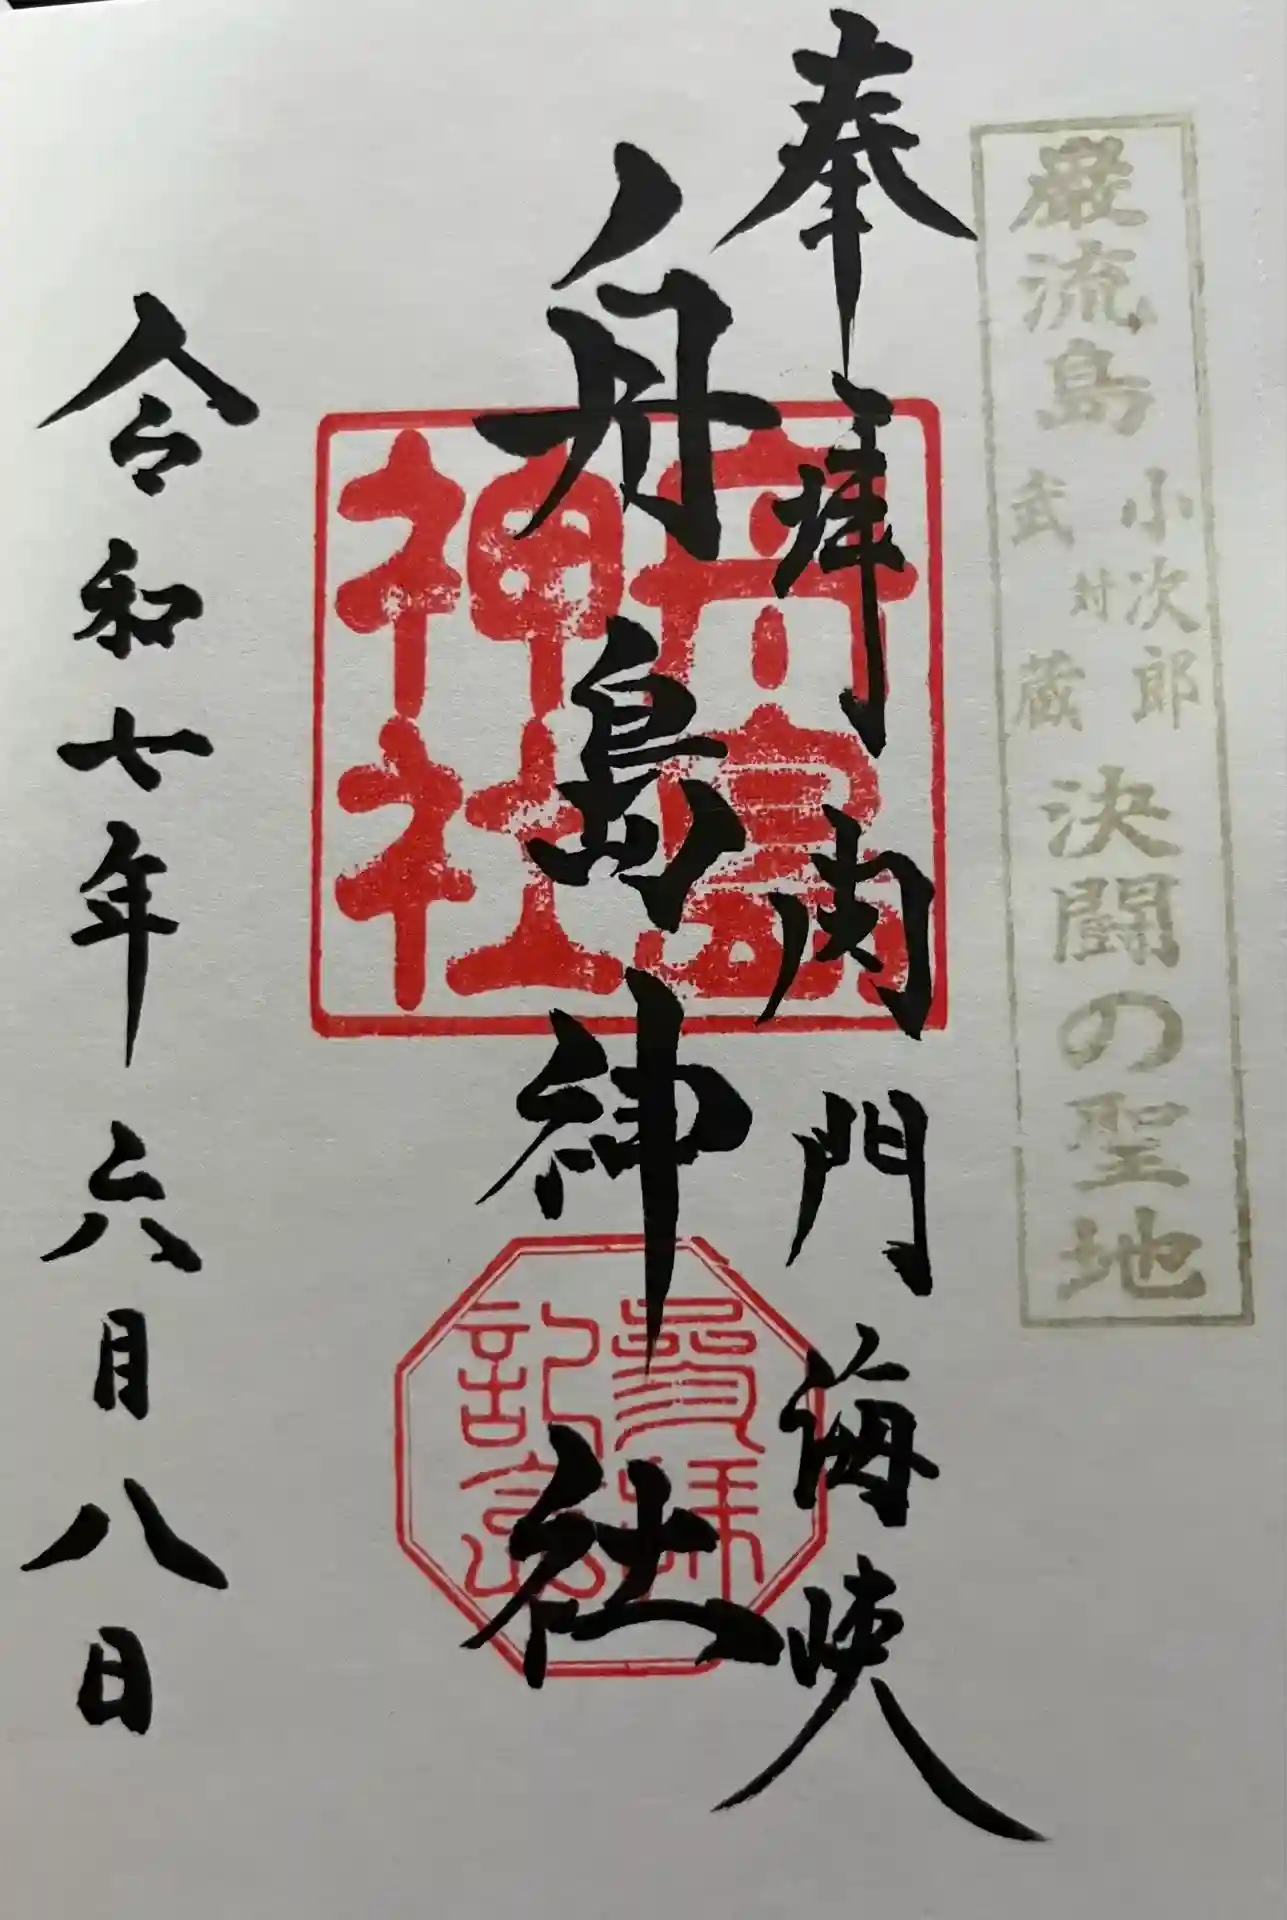 巌流島 小次郎 対 武蔵 決闘の聖地
奉拝 関門海峡
舟島神社
舟島神社
參拝記念
令和七年六月八日